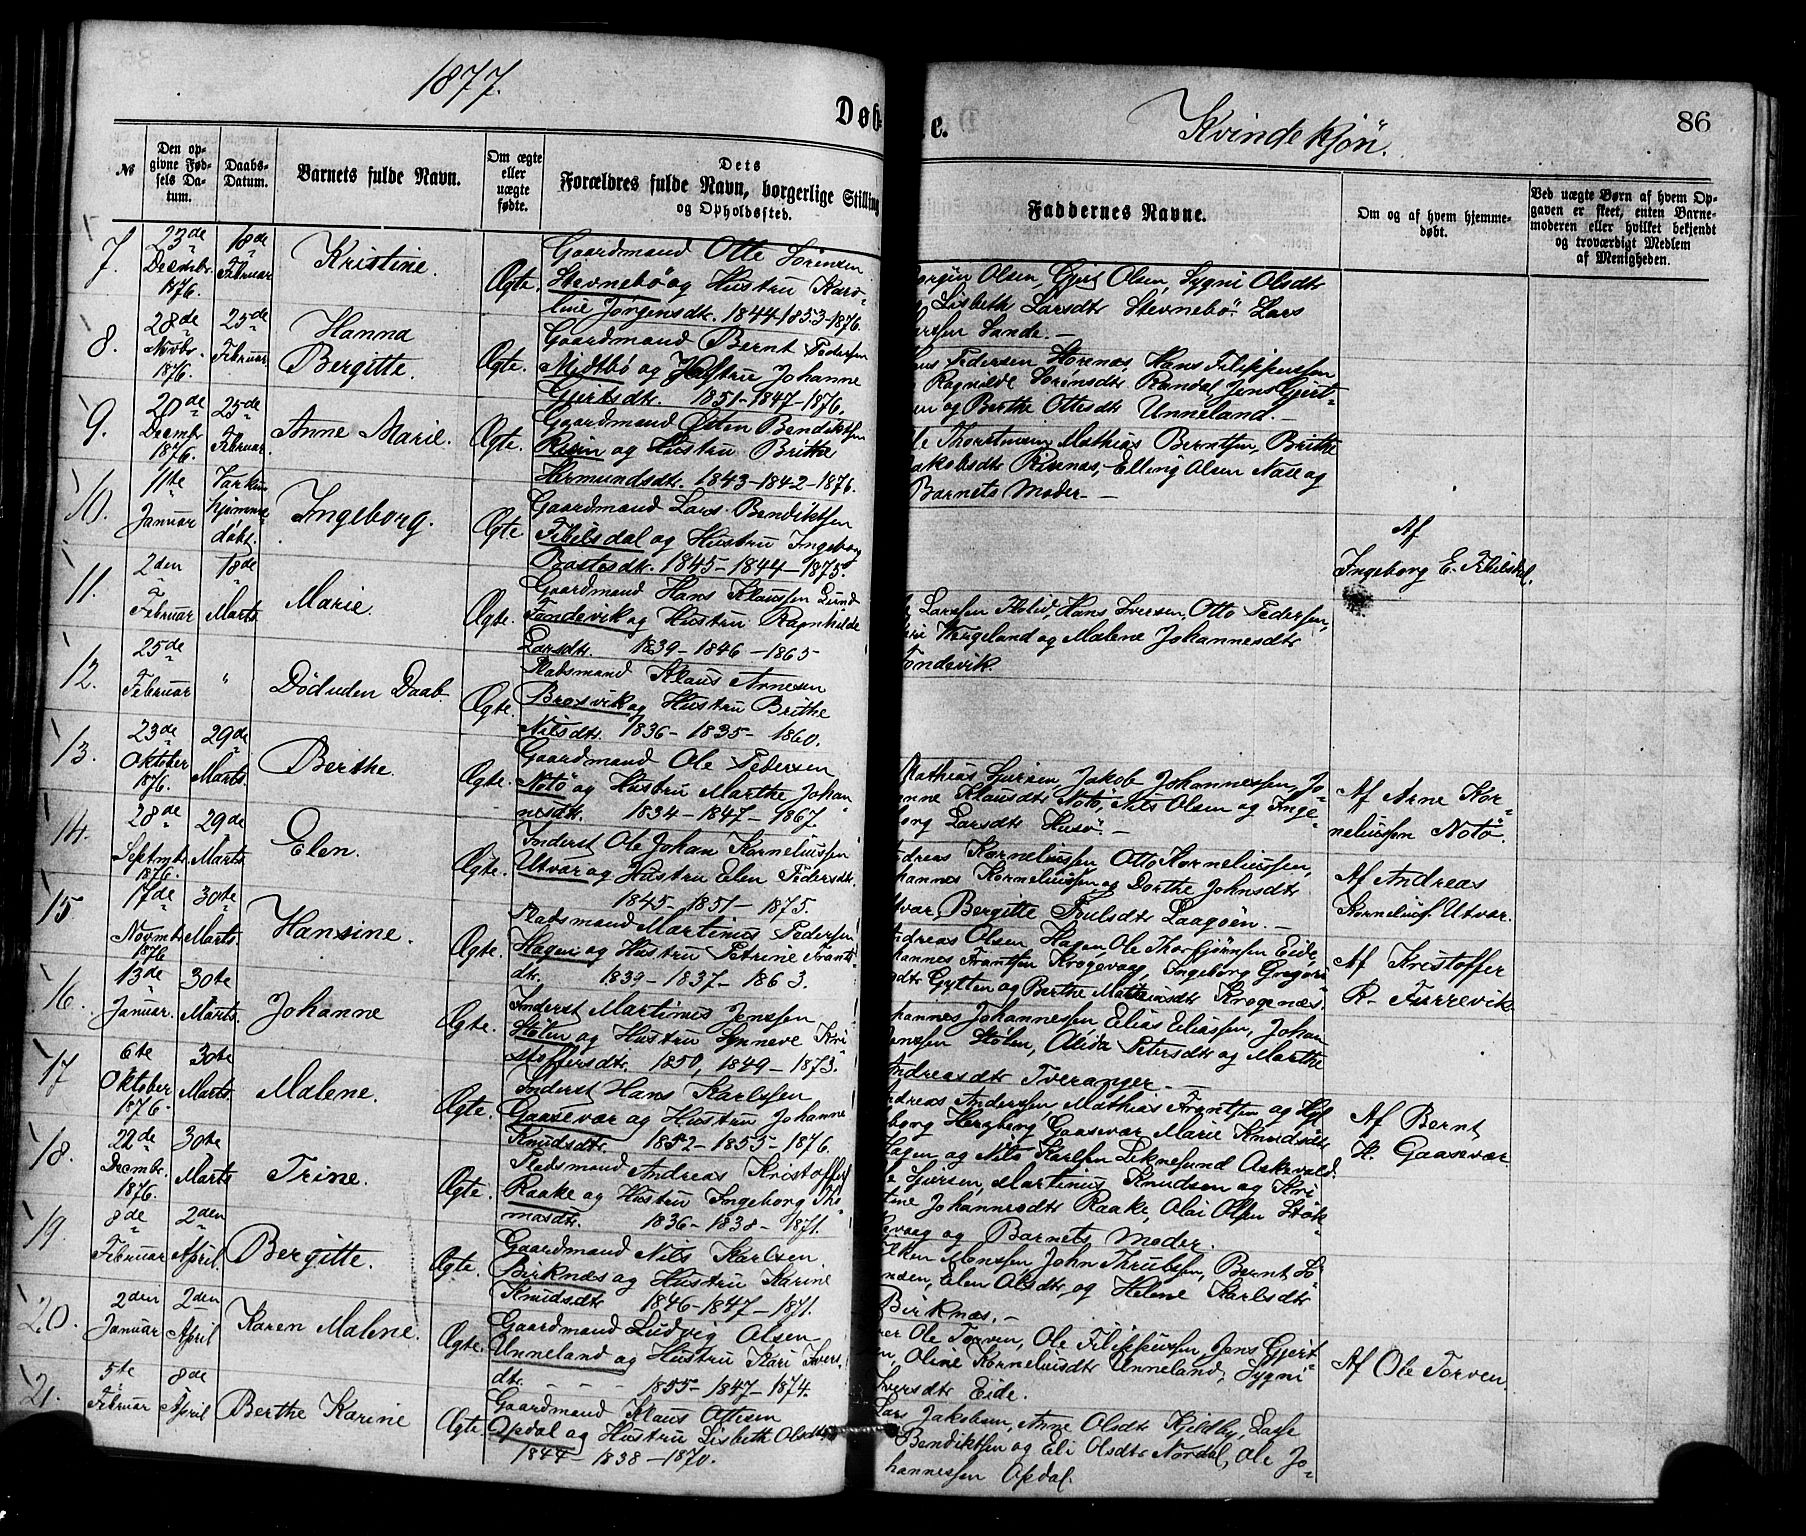 1877.
Døb
e.
Kvindekjøn.
86
№
Den opgivne Fødsels Datum.
Daabs-Datum.
Barnets fulde Navn.
Om ægte eller uægte fødte.
Dets Forældres fulde Navn, borgerlige Stilling og Opholdssted.
Faddernes Navne.
Om og af hvem hjemmedøbt.
Ved uægte Børn af hvem Opgaven er skeet, enten Barnemoderen eller hvilket bekjendt og troværdigt Medlem af Menigheden.
7. 23de Decembr. 1876. 18de Februar Kristine. Ægte. Gaardmand Otte Sørensen
Stevnebø og Hustru Karo-
line Jørgensdtr. 1844-1853-1876.
Olsen, Gjert Olsen, Sygni Olsdtr
Lisbeth Larsdtr Stevnebö. Lars
Sande.—
8. 28de Novbr. 1876. 25de Februar Hanna Bergitte. Ægte. Gaardmand Bernt Pedersen
Midtbö og Hustru Johanne
Gjertsdtr. 1851-1847-1876.
Pedersen Storenæs, Hans Filippussen
Ragnilde Sörensdtr Randal, Jens Gjert-
en og Berthe Ottesdtr Unneland.—
9. 20de Decembr 1876. 25de Februar. Anne Marie. Ægte. Gaardmand Østen Bendiktsen
Risin og Hustru Brithe
Hermundsdtr. 1843-1842-1876.
Mathias Berntsen, Brithe
Jakobsdtr Risnæs, Elling Olsen Nase og
Barnets Moder.—
10. 11te Januar hjemmedøbt. Ingeborg. Ægte Gaardmand Lars Bendiktsen
og Hustru Ingeborg
Bastesdtr. 1845-1844-1875.
Af
Ingeborg E.
11. 2den Februar 18de Marts. Marie. Ægte. Gaardmand Hans Klaussen Lund
Tandevik og Hustru Ragnhilde
Larsdtr. 1839-1846-1865
Larssen Hans Iversen, Otto Pedersen,
og Malene Johannesdtr
12. 25de Februar " Død uden Daab Ægte. Pladsmand Klaus Arnesen
Brosvik og Hustru Brithe
Nilsdtr. 1836-1835-1860.
13. 23de Oktober 1876. 29de Marts. Berthe. Ægte Gaardmand Ole Pedersen
Notö og Hustru Marthe Johan
nesdtr. 1834-1847-1867
Mathias Sjursen, Jakob Johannessen, Jo-
anne Klausdtr Notö, Nils Olsen og Inge-
borg Larsdtr Husö.—
Af Arne Kor-
neliussen Notö.
14. 28de Septmbr 1876. 29de Marts. Elen. Ægte. Inderst Ole Johan Korneliussen
Utvær og Hustru Elen Pedersdtr.
1845-1851-1875.
Andreas Korneliussen, Otto Korneliussen,
Johannes Korneliussen og Dorthe Johnsdtr
Utvær, Bergitte Trulsdtr Laagøen.—
Af Andreas
Korneliuss. Utvær.
15 17de Novembr 1876 30te Marts. Hansine. Ægte. Pladsmand Martinus Pedersen
Hagen og Hustru Petrine Frants-
dtr. 1839-1837-1863.
Andreas Olsen Hagen, Ole Thorsjönsen Eide,
Johannes Frantsen Krogevaag, Ingeborg Gregori
Gytten og Berthe Mathiasdtr Krogenæs.
Af Kristoffer
R. Furrevik
16. 13de Januar. 30te Marts. Johanne Ægte. Inderst Martinus Jenssen
Stölen og Hustru Synneve Kri-
stoffersdtr. 1850, 1849-1873.
Johannes Johannessen Elias Eliassen, Johan
Jenssen Stölen, Alida Petersdtr og Marthe
Andreasdtr Tveranger.—
17 6te Oktober 1876. 30te Marts. Malene. Ægte. Inderst Hans Karlssen
Gaasevær og Hustru Johanne
Knudsdtr. 1852-1855-1876.
Andreas Anderssen Mathias Frantsen og
Herzberg Gaasevær Marie Knudsdtr
Hagen og Nils Karlsen Leknesund Askevold.
Af Bernt
H. Gaasevær
18. 22de Decembr. 1876. 30te Marts Trine. Ægte. Pladsmand Andreas Kristoffers
Raake og Hustru Ingeborg Tho-
masdtr. 1836-1838-1871.
Sjursen, Martinus Knudsen og Kri
stine Johannesdtr Raake, Olai Olsen
og Barnets Moder.
19. 8de Februar 2den April Bergitte. Ægte. Gaardmand Nils Karlsen
Birknæs og Hustru Karine
Knudsdtr 1846-1847-1871.
Monssen, John Thrulssen, Bernt
Elen Olsdtr, og Helene Karlsdtr
Birknæs.—
20. 2den Januar 2den April Karen Malene. Ægte. Gaardmand Ludvig Olsen
Unneland og Hustru Kari Ivers-
dtr. - - - 1855-1847-1874.
Ole Torven, Ole Filippussen, Jens Gjert
en, Oline Korneliusdtr Unneland, Sygni
Iversdtr Eide.
Af Ole Torven.
21. 5te Februar 8de April Berthe Karine Ægte Gaardmand Klaus Ottesen
Opdal og Hustru Lisbeth Olsdtr
1844-1838-1870.
Lars Jakobsen, Anne Olsdtr Kjeldby, Lasse
Bendiktsen og Eli Olsdtr Nordal, Ole Jo-
hannessen Opdal.